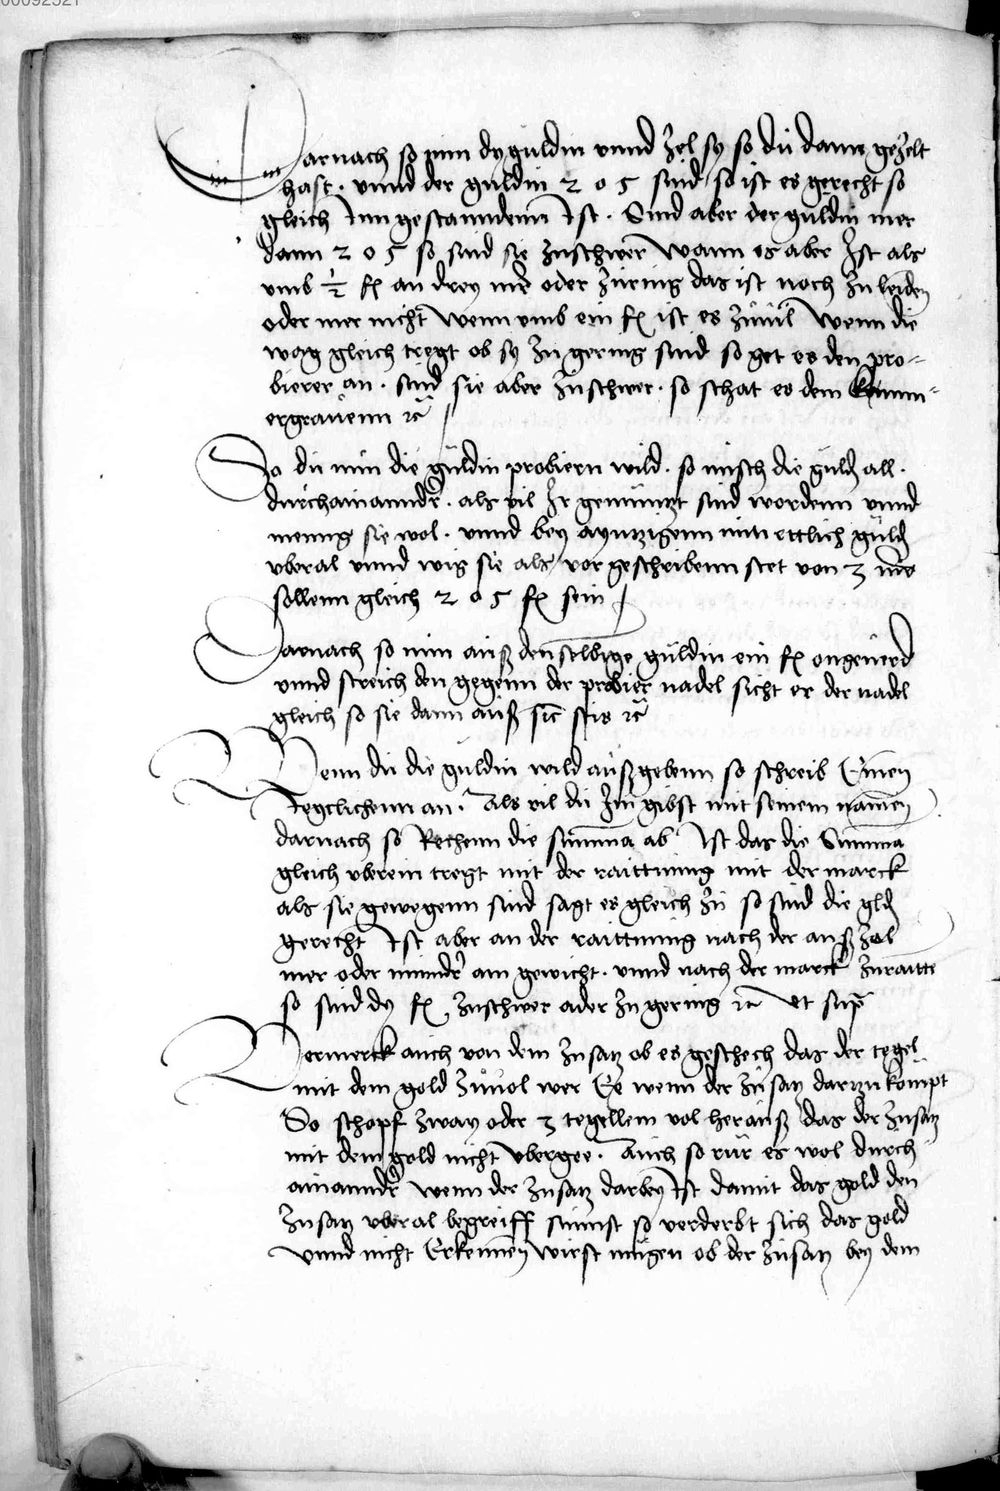 00092521
Darnach so nim dy guldin vnnd zel sy so du dann gezelt
hast · vnnd der guldin 205 sind so ist es gerecht so
gleich Inn gestanndenn Ist · Sind aber der guldin mer
dann 205 so sind sie zuschwer wann es aber Ist als
vmb ½ fl an drey mr oder zuring das ist noch zu leiden
oder mer nicht wenn vmb ein fl ist es zuuil wenn die
wag gleich tregt ob sy zu gering sind so get es den pro-
bierer an · sind sie aber zuschwer · so schat es dem Kamm-
ergrauenn rc
So du nun die guldin probiern wild · so misch die guld all ·
durchainanndr · als vil Ir gemunzt sind wordenn vnnd
meng sie wol · vnnd bey aynzigenn nim ettlich guld
vberal vnnd wig sie als vor geschribenn stet von 3 mr
sollenn gleich 205 fl sein
Darnach so nim auß denselbige guldin ein fl ongeuerd
vnnd streich den gegenn der probier nadel sicht er der nadel
gleich so sie dann auß sic stis rc
Wenn du die guldin wild außgebenn so schreib Einen
Teglichenn an · Als vil du Im gibst mit seinem namen
darnach so Rechenn die summa ab Ist das die Summa
gleich vberein tregt mit der raittung mit der marck
als sie gewegenn sind sagt es gleich zu so sind die gld
gerecht Ist aber an der raittung nach der auß zal
mer oder mindr am gewicht · vnnd nach der marck zuraitte
so sind dy fl zuschwer ader zu gering rc vt sup
Vermerck auch von dem zusaz ob es geschech das der tegel
mit dem gold zuuol wer Ee wenn der zusaz darzu kompt
So schopf zway oder 3 tegellein vol herauß das der zusaz
mit dem gold nicht vbergee · Auch so rur es wol durch
ainanndr wenn der zusaz darbey Ist damit das gold den
zusaz vberal begreiff sunnst so verderbt sich das gold
vnnd nicht Erkennen wirst mugen ob der zusaz bey dem